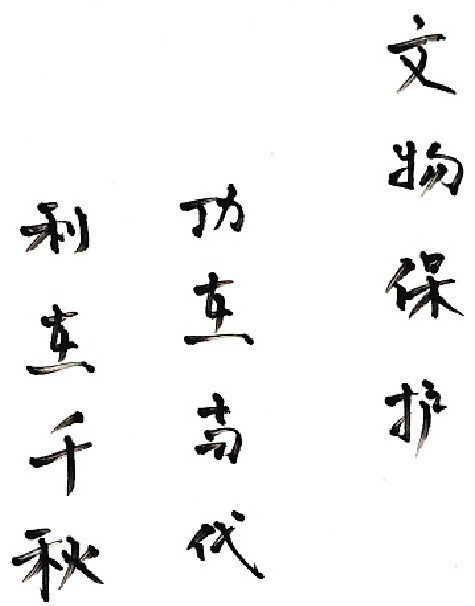 文物保护
功在当代
利在千秋